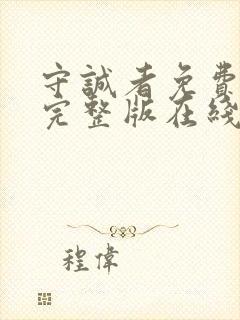 守誠者免費
完整版在綫
程偉